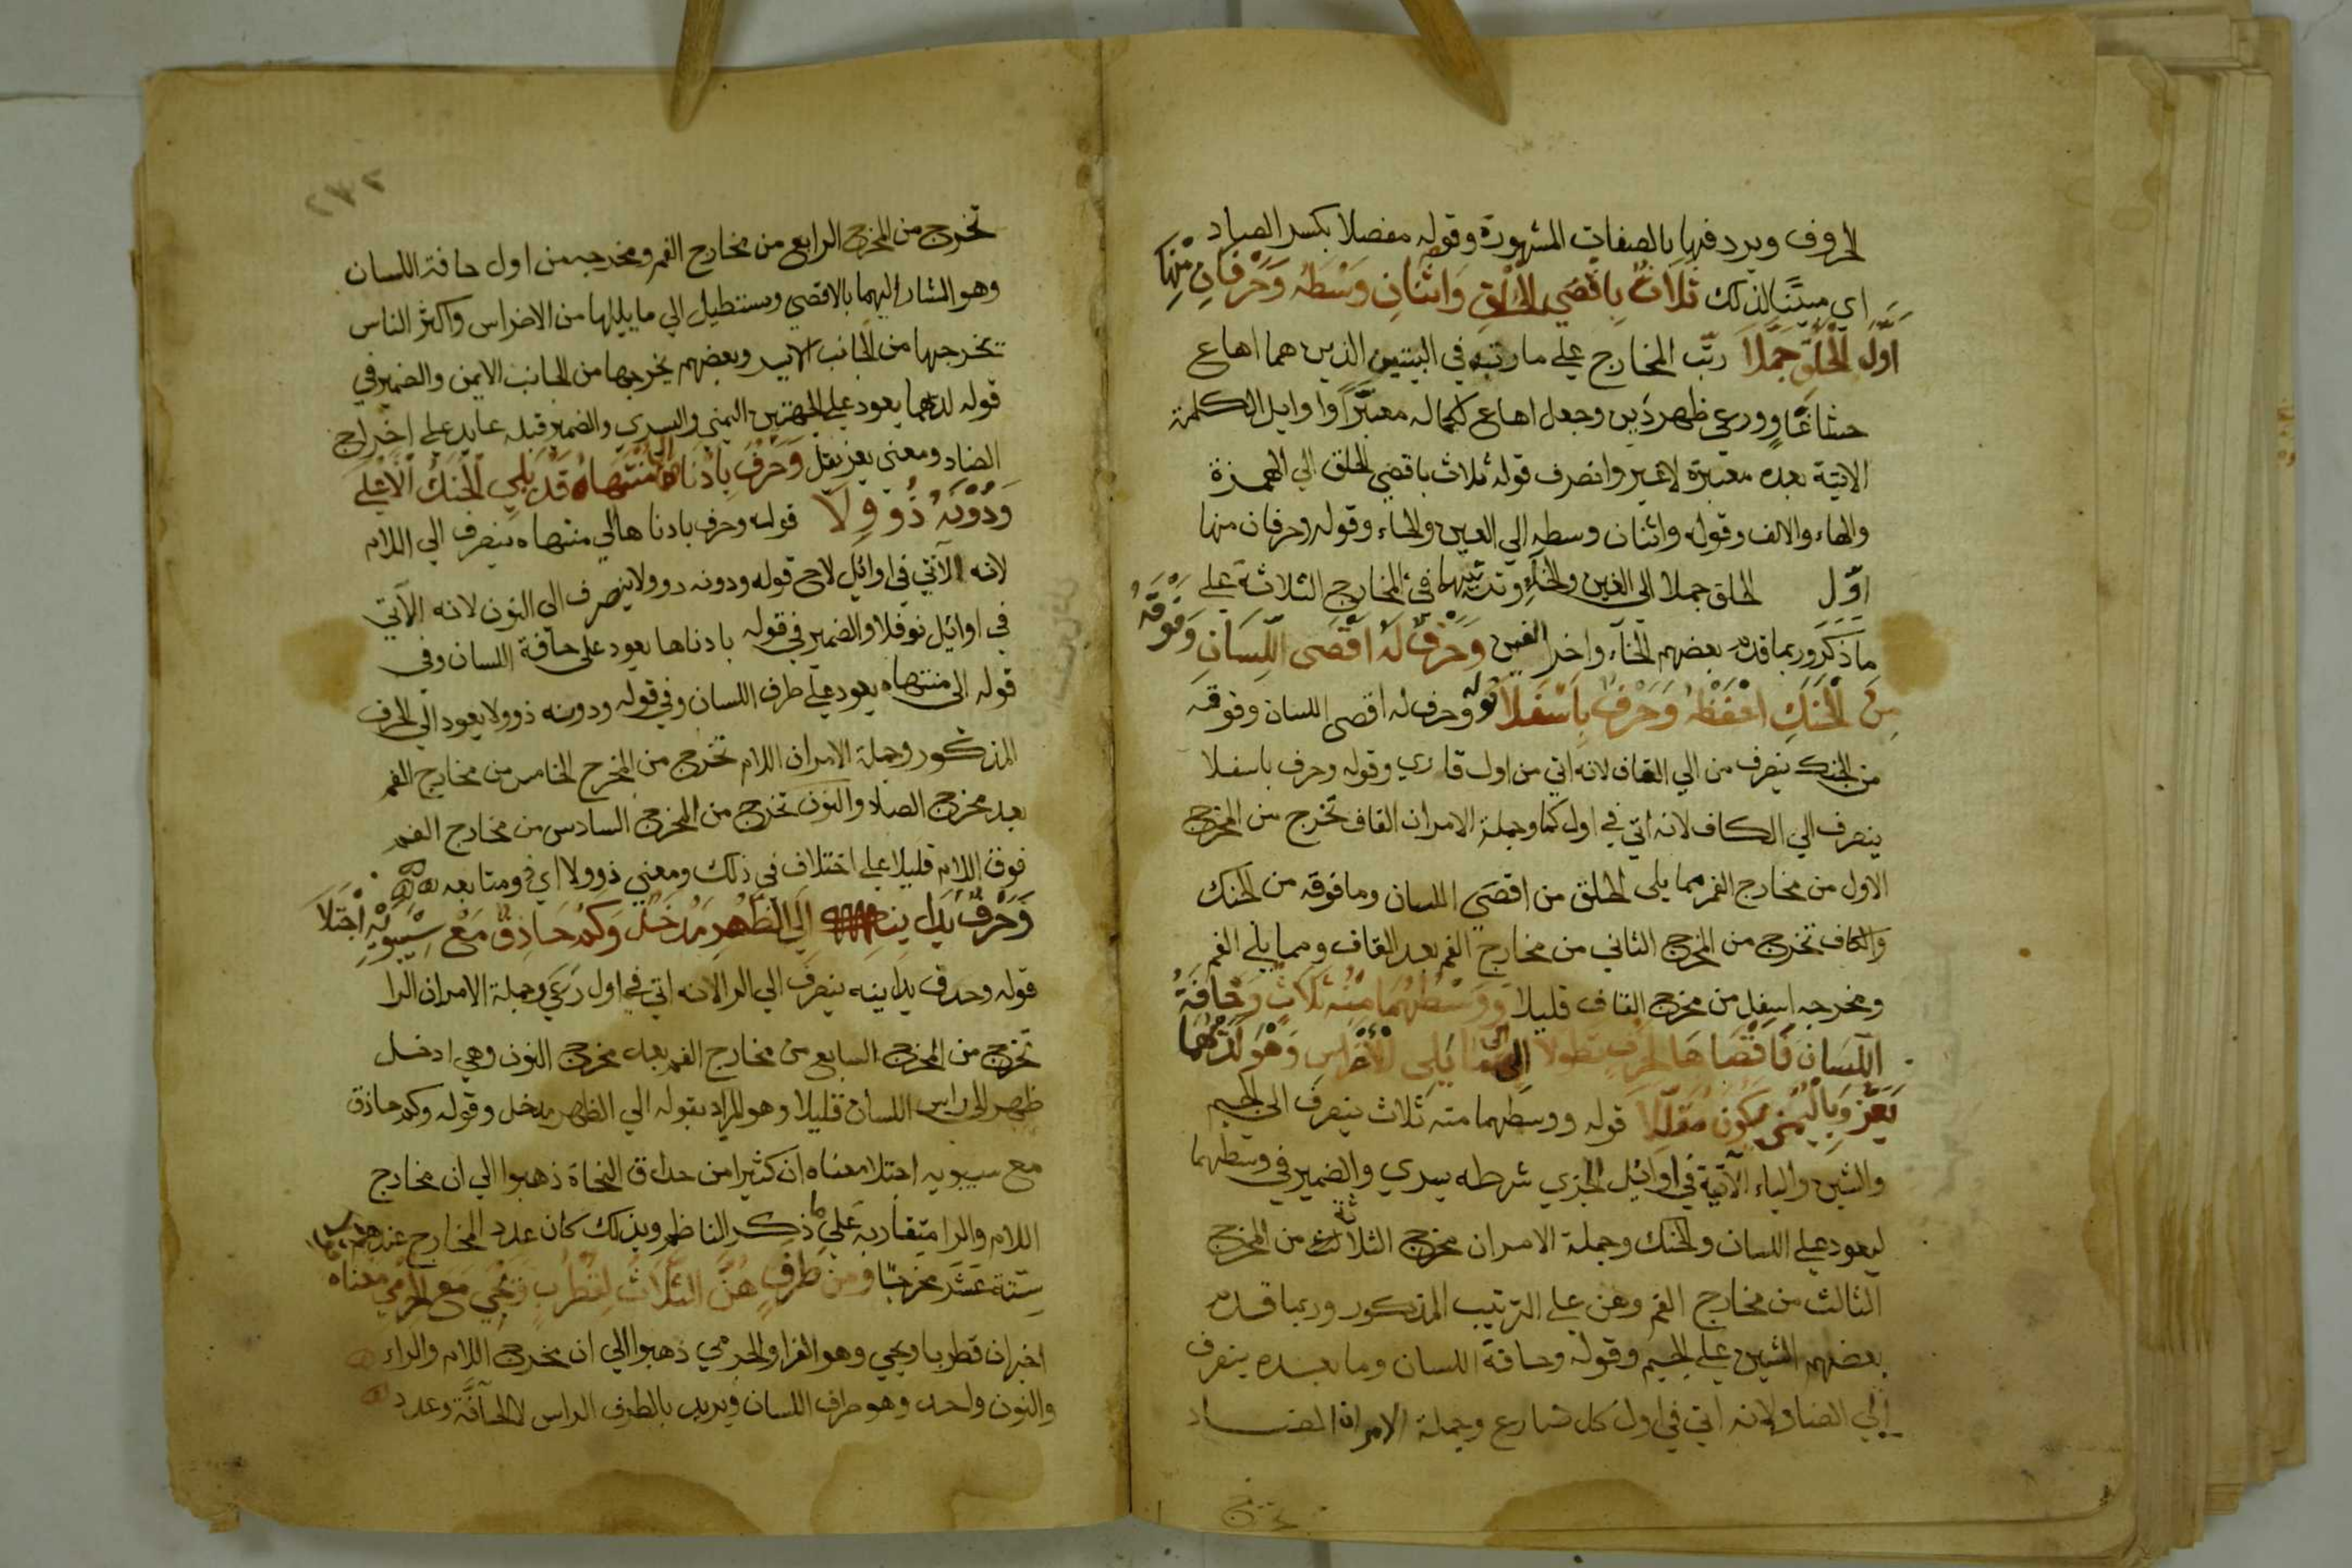 الحروف ويردفها بالصفات المشهورة وقوله مفصلا بكسر الصاد
اي مبينا لذلك ثَلَاثٌ بِاَقْصَى الْحَلْقِ وَاثْنَانِ وَسْطَهُ وَحَرْفَانِ مِنْهَا
اَوَّلَ الْحَلْقِ جُمِّلَا رتب المخارج علي ما رتبه في البيتين الذين هما اهاع
حشا غاو ورعى ظهر دين وجعل اهاع بكماله معتبرا واوايل الكلمة
الاتية بعده معتبرة لاغير وانصرف قوله ثلاث باقصي الحلق الي الهمزة
والهاء والالف وقوله واثنان وسطه الي العين والحاء وقوله وحرفان منها
اوّل الحلق جملا الي الغين والخاء وترتيبها في المخارج الثلاثة علي
ما ذكر وربما قدم بعضهم الخاء واخر الغين وَحَرْفٌ لَهُ اَقْصَى اللِّسَانِ وَفَوْقَهُ
مِنَ الْحَنَكِ احْفَظْهُ وَحَرْفٌ بِاَسْفَلَا قوله وحرف له اقصى اللسان وفوقه
من الحنك ينصرف من الي القاف لانه اتي من اول قاري وقوله وحرف باسفلا
ينصرف الي الكاف لانه اتي في اول كما وجملة الامر ان القاف تخرج من المخرج
الاول من مخارج الفم مما يلي الحلق من اقصي اللسان وما فوقه من الحنك
والكاف تخرج من المخرج الثاني من مخارج الفم بعد القاف ومما يلي الفم
ومخرجه اسفل من مخرج القاف قليلا وَوَسْطُهُمَا مِنْهُ ثَلَاثٌ وَحَافَةُ
اللِّسَانِ فَاَقْصَاهَا لِحَرْفٍ تَطَوَّلَا اِلَى مَا يَلِي الْاَضْرَاسَ وَهْوَ لَدَيْهِمَا
يَعِزُّ وَبِالْيُمْنَى يَكُونُ مُقَلَّلَا قوله ووسطهما منه ثلاث ينصرف الي الجيم
والشين والياء الآتية في اوائل الجزي شرطه يسري والضمير في وسطهما
ليعود علي اللسان والحنك وجملة الامر ان مخرج الثلاثة من المخرج
الثالث من مخارج الفم وهن علي الترتيب المذكور وربما قدم
بعضهم الشين علي الجيم وقوله وحافة اللسان وما بعده ينصرف
الي الضاد لانه اتي في اول كل ضارع وجملة الامر ان الضاد
تخرج
٢٧٢
تخرج من المخرج الرابع من مخارج الفم ومخرجه من اول حافة اللسان
وهو المشار اليهما بالاقصي ويستطيل الي ما يليها من الاضراس واكثر الناس
يخرجها من الجانب الايسر وبعضهم يخرجها من الجانب الايمن والضمير في
قوله لديهما يعود علي الجهتين اليمني واليسري والضمير قبله عايد علي اخراج
الضاد ومعني يعز يقل وَحَرْفٌ بِاَدْنَاهَا اِلَى مُنْتَهَاهُ قَدْ يَلِي الْحَنَكَ الْاَعْلَى
وَدُونَهُ ذُو وِلَا قوله وحرف بادناها الي منتهاه ينصرف الي اللام
لانه الآتي في اوائل لاح قوله ودونه ذو ولا ينصرف الى النون لانه الآتي
في اوائل نوفلا والضمير في قوله بادناها يعود على حافة اللسان وفي
قوله الى منتهاه يعود علي طرف اللسان وفي قوله ودونه ذو ولا يعود الي الحرف
المذكور وجملة الامر ان اللام تخرج من المخرج الخامس من مخارج الفم
بعد مخرج الضاد والنون تخرج من المخرج السادس من مخارج الفم
فوق اللام قليلا علي اختلاف في ذلك ومعني ذو ولا اي ومتابعه
وَحَرْفٌ يُدَانِيهِ اِلَى الظَّهْرِ مَدْخَلٌ وَكَمْ حَاذِقٍ مَعْ سِيبَوَيْهِ اجْتَلَا
قوله وحرف يدانيه ينصرف الي الرا لانه اتي في اول رعي وجملة الامر ان الرا
تخرج من المخرج السابع من مخارج الفم بعد مخرج النون وهي ادخل
ظهر الي راس اللسان قليلا وهو المراد بقوله الي الظهر مدخل وقوله وكم حاذق
مع سيبويه اجتلا معناه ان كثيرا من حذاق النحاة ذهبوا الي ان مخارج
اللام والرا متقاربة علي ما ذكر الناظم وبذلك كان عدد المخارج عندهم
ستة عشر مخرجا وَمِنْ طَرَفٍ هُنَّ الثَّلَاثُ لِقُطْرُبٍ وَيَحْيَى مَعَ الْجَرْمِي معناه
اخبر ان قطربا ويحيي وهو الفرا والجرمي ذهبوا الي ان مخرج اللام والراء
والنون واحد وهو طرف اللسان ويريد بالطرف الراس لا الحافة وعدد